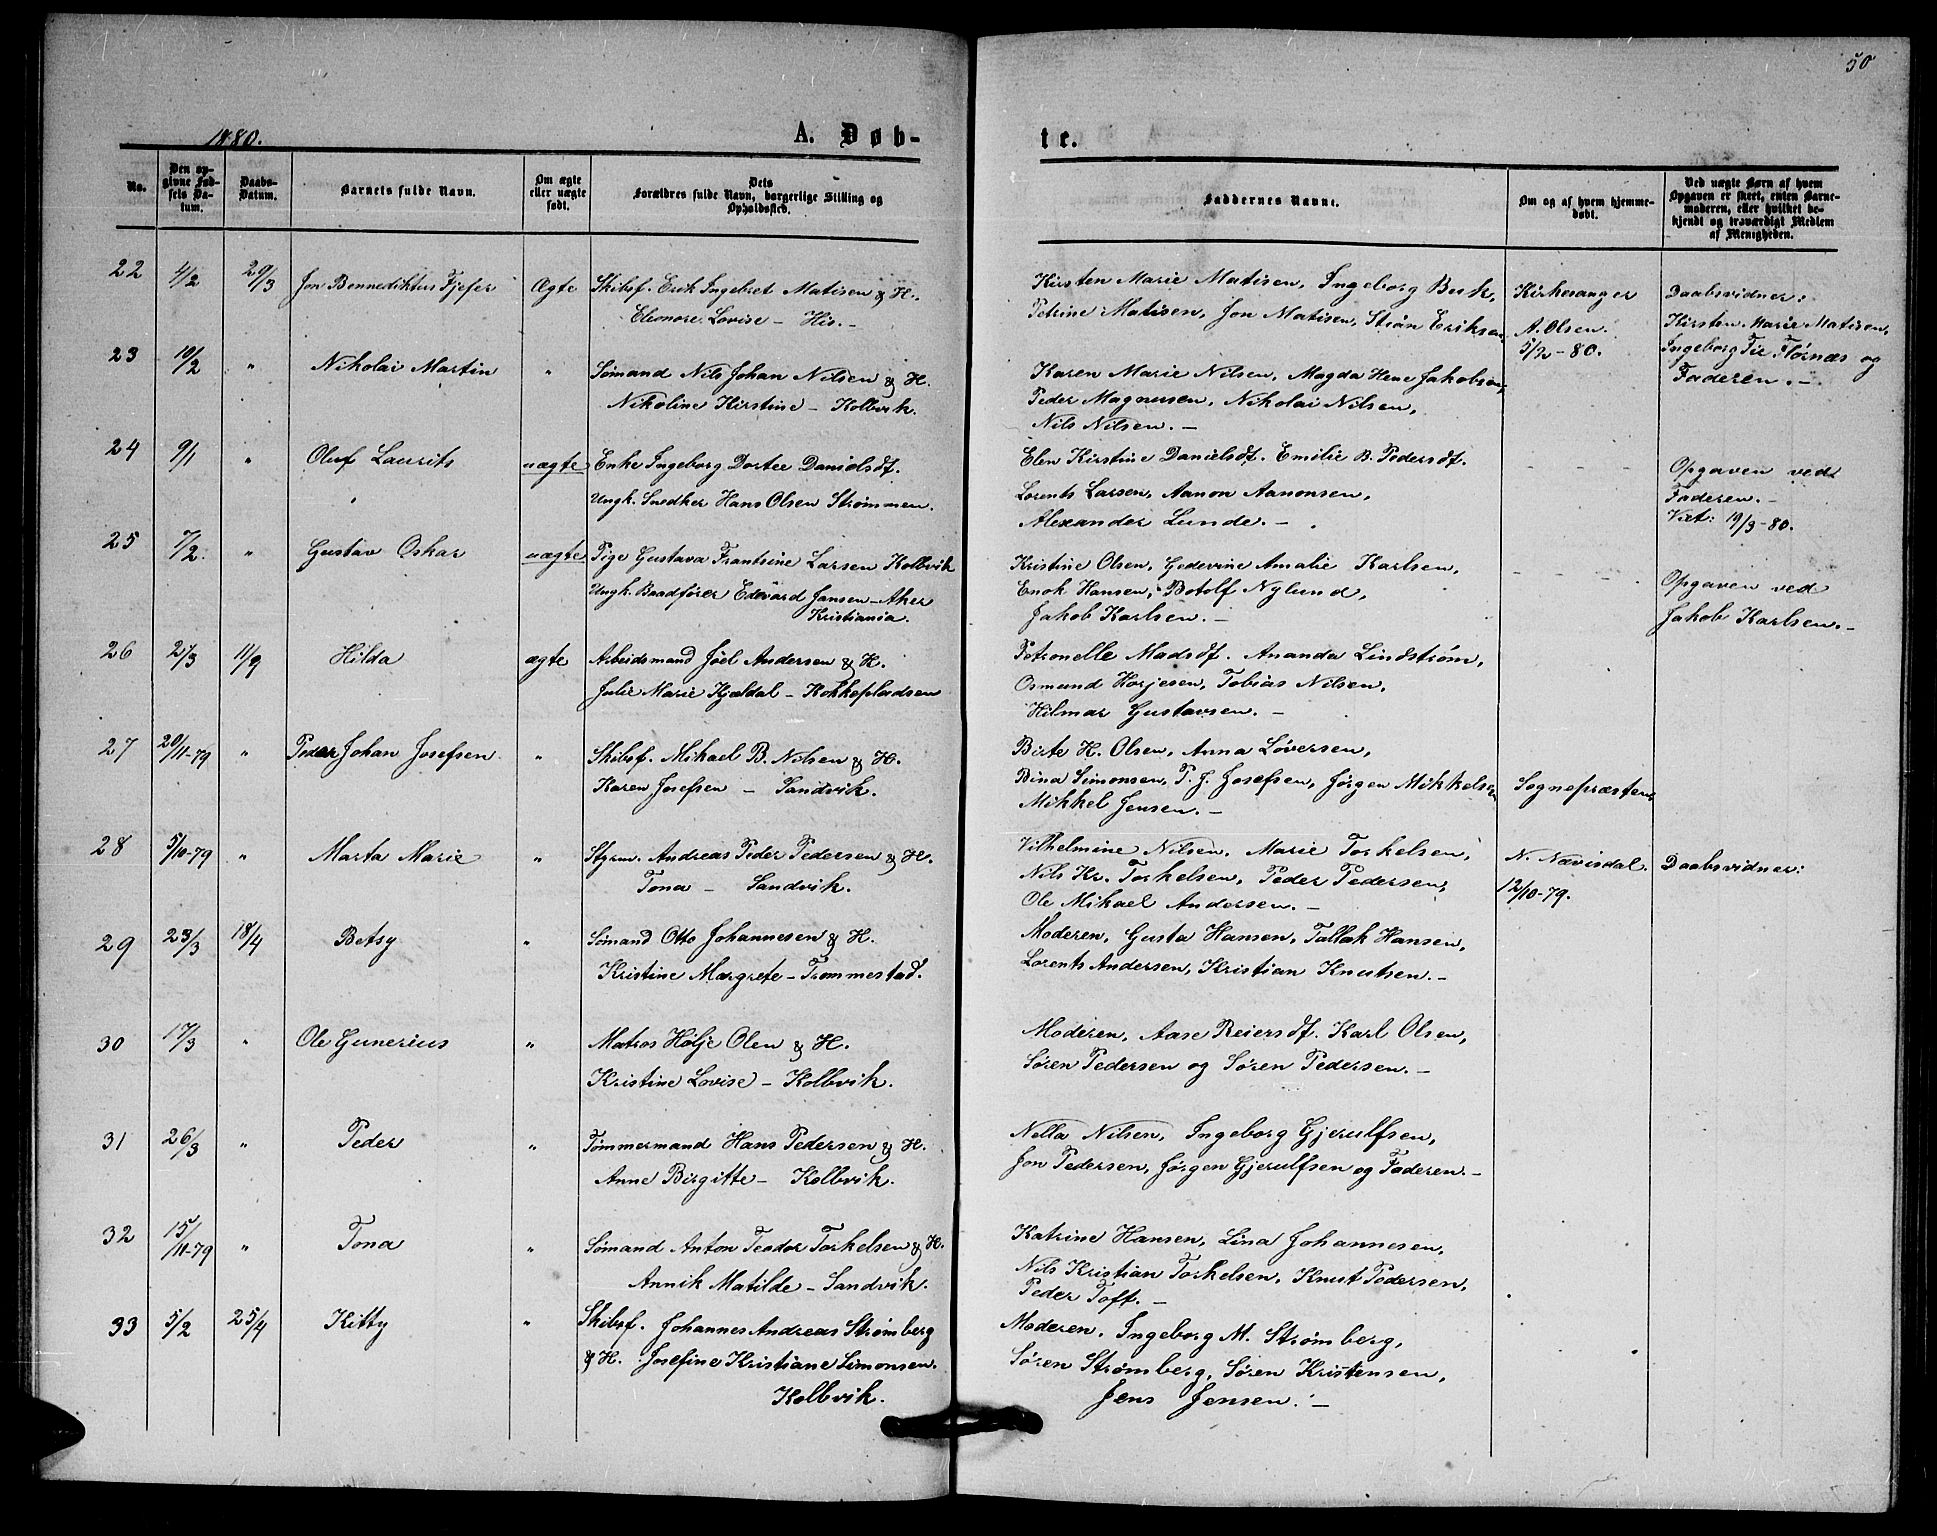 50
1880.
A. Døb-
te.
No.
Den op-
givne Fød-
sels Da-
tum.
Daabs-
Datum.
Barnets fulde Navn.
Om ægte
eller uægte
født.
Dets
Forældres fulde Navn, borgerlige Stilling og
Opholdssted.
Faddernes Navne.
Om og af hvem hjemme-
døbt.
Ved uægte Børn af hvem
Opgaven er skeet, enten Barne-
moderen, eller hvilket be-
kjendt og troværdigt Medlem
af Menigheden.
22 4/2 29/3 Jon Bennediktus Fjefer Ægte Skibsf. Erik Ingebret Matisen & H.
Eleonore Lovise – His. –
Kirsten Marie Matisen, Ingeborg Berk,
Petrine Matisen, Jon Matisen, Strån Eriksen,
Kirkesanger
A. Olsen.
5/2-80.
Daabsvidner:
Kirsten Marie Matisen,
Ingeborg Tis. Flørnæs og
Faderen. –
23 19/2 " Nikolai Martin " Sømand Nils Johan Nilsen & H.
Nikoline Kirstine – Kolbvik.
Karen Marie Nilsen, Magda Hene Jakobsen,
Peder Magnusen, Nikolai Nilsen,
Nils Nilsen. –
24 9/1 " Oluf Laurits uægte Enke Ingeborg Dortee Danielsdf.
Ungk. Snedker Hans Olsen Strømmen.
Elen Kirstine Danielsdf. Emilie B. Pedersdf.
Lorents Larsen, Aanon Aanonsen,
Alexander Lunde. –
Opgaven ved
Faderen. –
Viet: 19/3-80.
25 7/2. " Gustav Oskar uægte Pige Gustava Frantsine Larsen Kolbvik
Ungk. Baadfører Edevard Jansen – Aker
Kristiania.
Kristine Olsen, Gedevine Amalie Karlsen,
Enok Hansen, Botolf Nylund,
Jakob Karlsen. –
Opgaven ved
Jakob Karlsen. –
26 21/3 11/9 Hilda ægte Arbeidsmand Joel Andersen & H.
Julie Marie Kjældal – Kokkepladsen
Petronelle Madsdf. Ananda Lindstrøm,
Osmund Horjesen, Tobias Nilsen,
Hilmar Gustavsen. –
27 20/11-79 " Peder Johan Josefsen " Skibsf. Mikael B. Nilsen & H.
Karen Josefsen – Sandvik.
Birte H. Olsen, Anna Løversen,
Bina Simonsen, P. J. Josefsen, Jørgen Mikkelsen
Mikkel Jensen. –
Sognepræsten,
28 5/10-79 " Marta Marie " Styrm. Andreas Peder Pedersen & H.
Tona – Sandvik.
Vilhelmine Nilsen, Marie Torkelsen,
Nils Kr. Torkelsen, Peder Pedersen,
Ole Mikael Andersen. –
N. Nævisdal.
12/10-79.
Daabsvidner:
29 23/3 18/4 Betsy " Sømand Otto Johannesen & H.
Kristine Margrete – Trommestad.
Moderen, Gusta Hansen, Tallak Hansen,
Lorents Andersen, Kristian Knutsen. –
30 17/3 " Ole Gunerius " Matros Holje Olen & H.
Kristine Lovise – Kolbvik.
Moderen, Aase Reiersdf. Karl Olsen,
Søren Pedersen og Søren Pedersen. –
31 26/3 " Peder " Tømmermand Hans Pedersen & H.
Anne Birgitte – Kolbvik.
Nella Nilsen, Ingeborg Gjerulfsen,
Jon Pedersen, Jørgen Gjerulfsen og Faderen. –
32 15/11-79 " Tona " Sømand Anton Teodor Torkelsen & H.
Annik Matilde – Sandvik.
Katrine Hansen, Lina Johannesen,
Nils Kristian Torkelsen, Knut Pedersen,
Peder Toft. –
33 5/2 25/4 Kitty " Skibsf. Johannes Andreas Strømberg
& H. Josefine Kristiane Simonsen.
Kolbvik.
Moderen, Ingeborg M. Strømberg,
Søren Strømberg, Søren Kristensen,
Jens Jensen. –